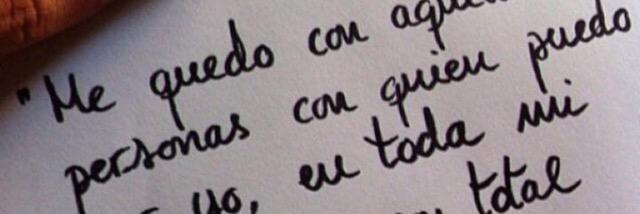 "Me quedo con
personas con quien puedo
yo, en toda mi
total